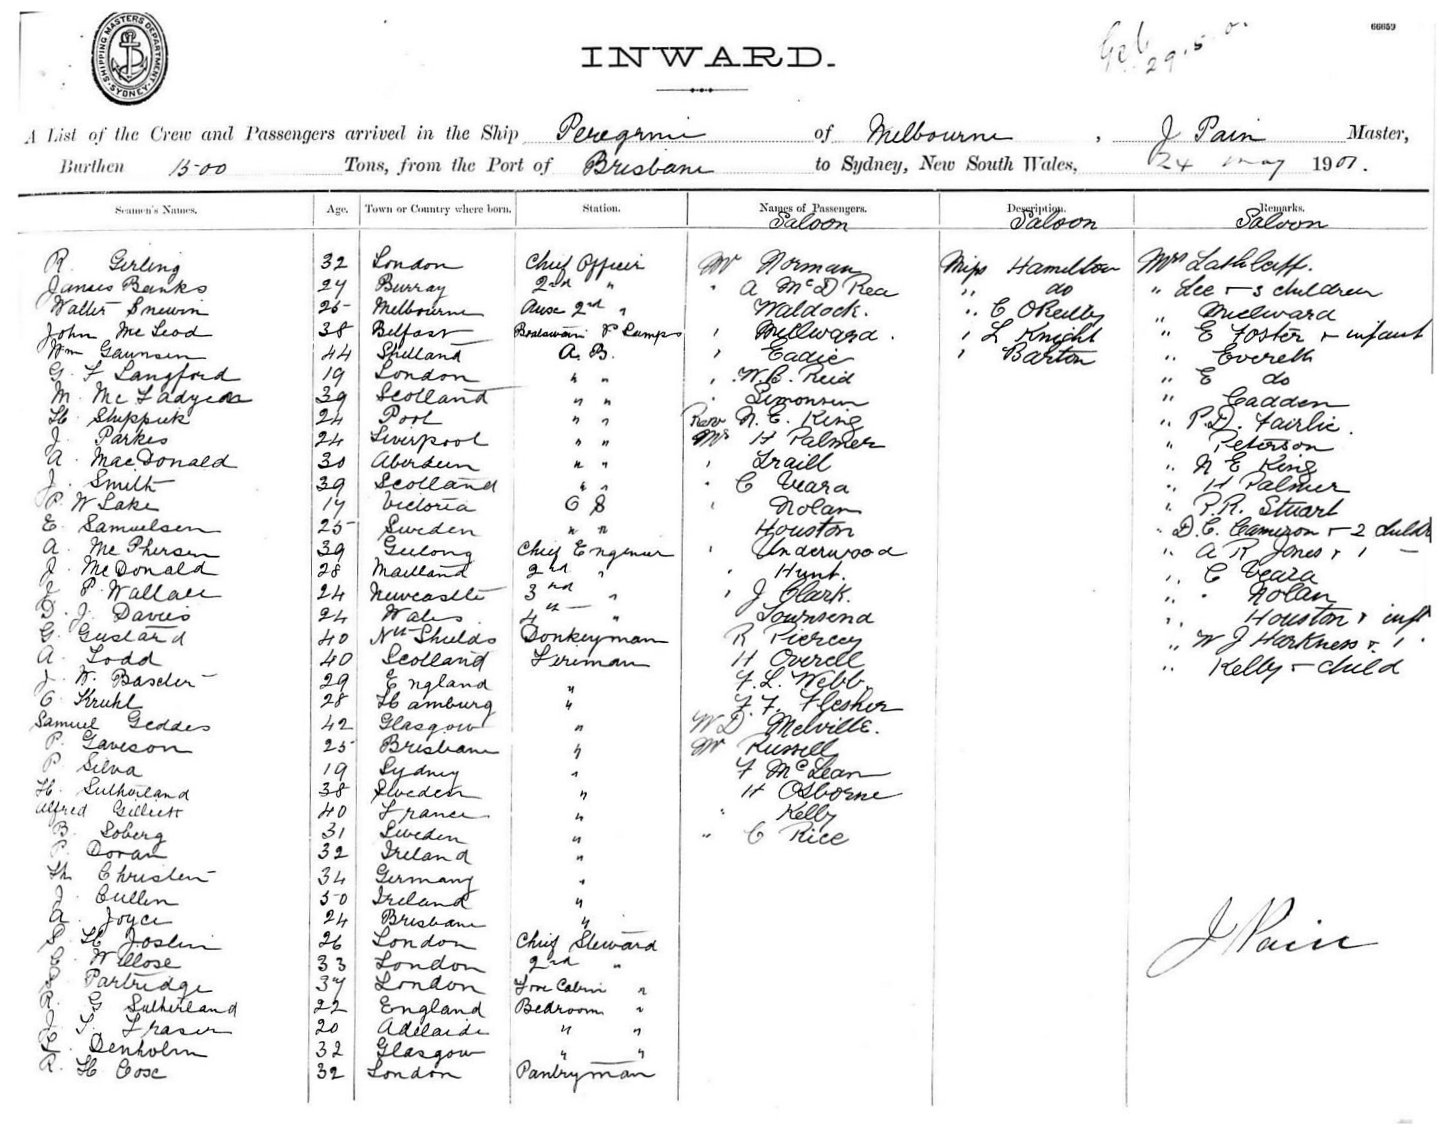 66659
SHIPPING MASTERS DEPARTMENT. SYDNEY.
INWARD.
29.5.01
A List of the Crew and Passengers arrived in the Ship Peregrine of Melbourne, J Pain Master,
Burthen 1500 Tons, from the Port of Brisbane to Sydney, New South Wales, 24 May 1901.
Seamen's Names. Age. Town or Country where born. Station. Names of Passengers. Description. Remarks.
Saloon Saloon Saloon
R. Girling 32 London Chief Officer Mr Norman Miss Hamilton Mrs Lathlaiff.
James Banks 27 Burray 2nd " " A McD Rea " do " Lee + 3 children
Walter Snewin 25 Melbourne Auxe 2nd " Waldock. " C OReilly " Millward
John McLeod 38 Belfast Boatswain & Lamps " Millward. " L Knight " E Foster + infant
Wm Gaunson 44 Shetland A. B. " Eadie " Barton " Everett
G. F Langford 19 London " " " W. C. Reid " E do
M. McFadyean 39 Scotland " " " Simonsen " Cadden
H. Shippick 24 Pool " " Rev N. E. King " P. D. Fairlie.
J. Parkes 24 Liverpool " " Mr H Palmer " Peterson
A. MacDonald 30 Aberdeen " " " Traill " N E King
J. Smith 39 Scotland " " " C Veara " H Palmer
P. W Lake 17 Victoria O S " Nolan " R. R. Stuart
E. Samuelsen 25 Sweden " " Houston " D. C. Cameron + 2 childr
A. McPherson 39 Geelong Chief Engineer " Underwood " A R Jones + 1 -
J. McDonald 28 Maitland 2nd " " Hunt. " C Veara
J. P. Wallace 24 Newcastle 3rd " " J Clark. " " Nolan
D. J. Davies 24 Wales 4th " Townsend " Houston + inft
G. Gustard 40 Nth Shields Donkeyman R Piercey " W J Harkness + 1
A. Todd 40 Scotland Fireman H Overell " Kelly + child
J. W. Baseler 29 England " F. L. Webb.
C. Kruhl 28 Hamburg " F. F. Flesher
Samuel Geddes 42 Glasgow " W D Melville.
P. Gaveson 25 Brisbane " Mr Russell
P Silva 19 Sydney " F McLean
H. Sutherland 38 Sweden " H Osborne
Alfred Gillett 40 France " " Kelly
B. Soberg 31 Sweden " " C Rice
P. Doran 32 Ireland "
Th Christen 34 Germany "
J. Cullen 50 Ireland "
A. Joyce 24 Brisbane "
S. H. Joslin 26 London Chief Steward
C. Willose 33 London 2nd " J Pain
S. Partridge 37 London Fore Cabin "
R. G Sutherland 22 England Bedroom "
J. S. Fraser 20 Adelaide " "
L. Denholm 32 Glasgow " "
R. H Cose 32 London Pantryman